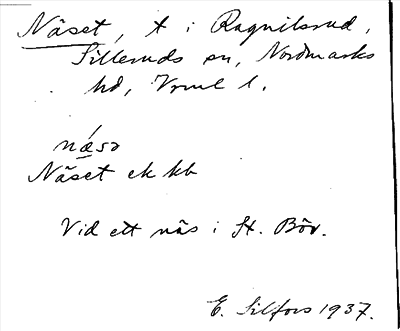 Näset, t i Ragnilsrud,
Silleruds sn, Nordmarks
hd, Vrml l.
nǽsə
Näset ek kb
Vid ett näs i St. Böv.
E. Silfors 1937.